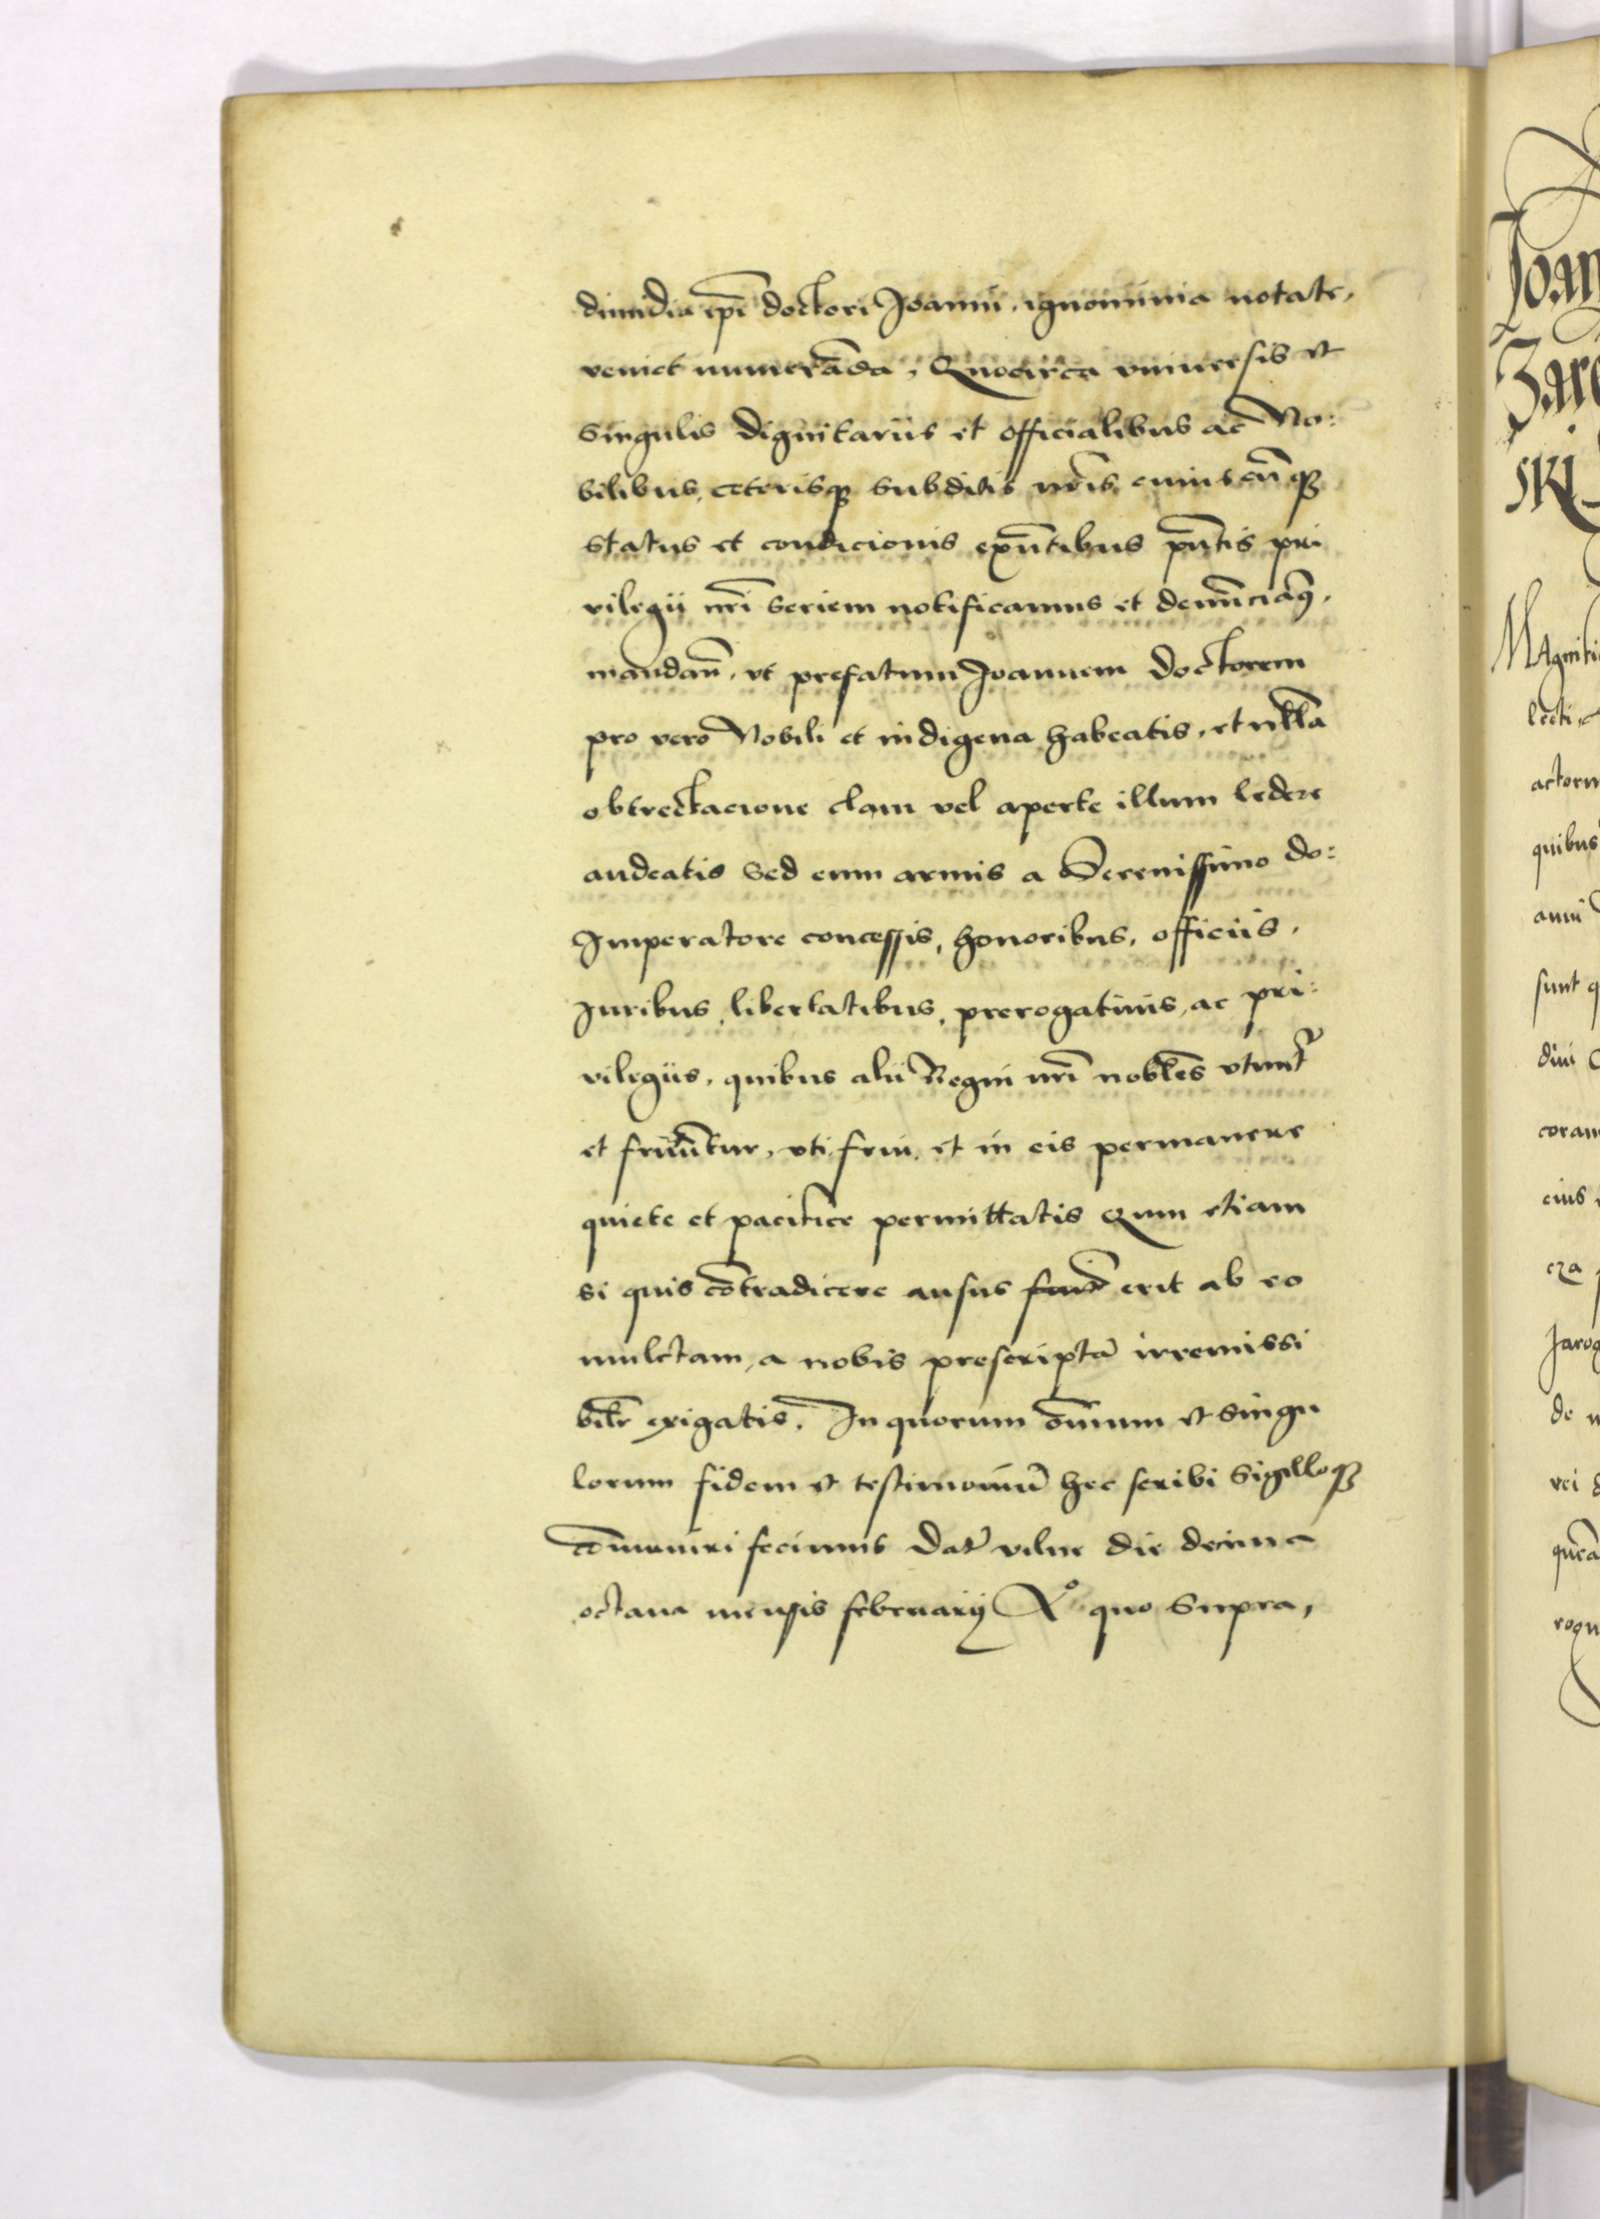 dimidia ip̄i doctori Joanni, ignominia notate,
veniet numerāda, Quocirca vniuersis et
singulis dignitariis et officialibus ac No:
bilibus, ceterisqꝫ subditis nr̄is cuiuscūqꝫ
status et condicionis exn̄tibus pn̄tis pri
vilegii nr̄i seriem notificamus et denūciāꝰ,
mandan̄, vt prefatum Joannem Doctorem
pro vero Nobili et indigena habeatis, et nlla
obtrectacione clam vel aperte illum ledere
audeatis sed eum armis a Serenissimo do:
Imperatore concessis, honoribus, officiis,
Juribus, libertatibus, prerogatiuis, ac pri:
vilegiis, quibus alii Regni nr̄i nobl̄es vtunt᷑
et fruūtur, vti frui et in eis permanere
quiete et pacifice permittatis Qum etiam
si quis cōtradicere ausus erit ab eo
mulctam, a nobis prescriptā irremissi
bilr̄ exigatis, In quorum om̄ium et singu
lorum fidem et testimoniū hec scribi sigilloqꝫ
cōmuniri fecimus Dat̄ vilne die decima
octaua mensis februarij Aº quo supra,
Joan
Zar
SKI
Magnifi
lecti,
actorum
quibus
anni
sunt q
diui
coram
eius
cza
Jarog
de
rei
quēa
rogu